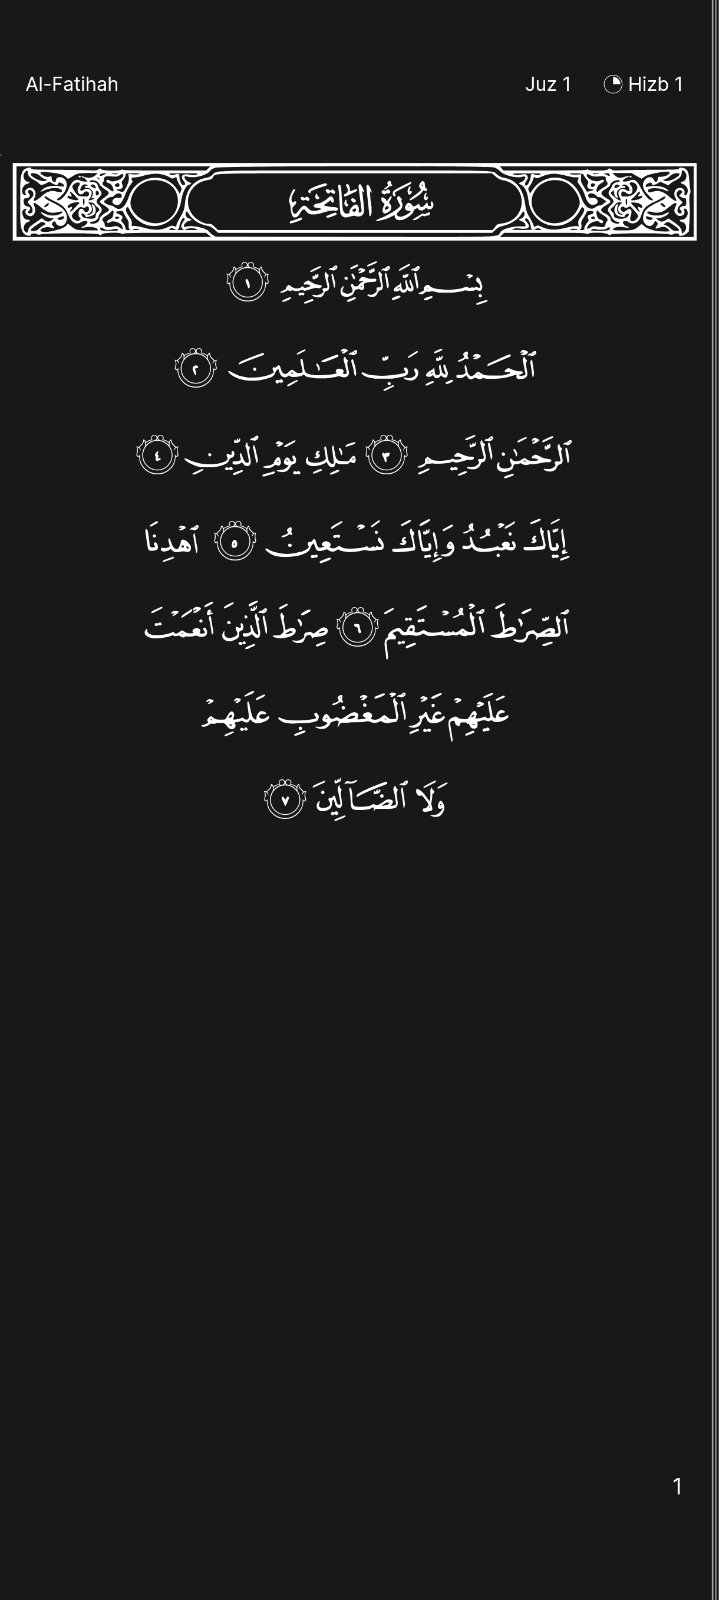 Al-Fatihah Juz 1 Hizb 1
سُورَةُ الفَاتِحَةِ
بِسۡمِ ٱللَّهِ ٱلرَّحۡمَٰنِ ٱلرَّحِيمِ ١
ٱلۡحَمۡدُ لِلَّهِ رَبِّ ٱلۡعَٰلَمِينَ ٢
ٱلرَّحۡمَٰنِ ٱلرَّحِيمِ ٣ مَٰلِكِ يَوۡمِ ٱلدِّينِ ٤
إِيَّاكَ نَعۡبُدُ وَإِيَّاكَ نَسۡتَعِينُ ٥ ٱهۡدِنَا
ٱلصِّرَٰطَ ٱلۡمُسۡتَقِيمَ ٦ صِرَٰطَ ٱلَّذِينَ أَنۡعَمۡتَ
عَلَيۡهِمۡ غَيۡرِ ٱلۡمَغۡضُوبِ عَلَيۡهِمۡ
وَلَا ٱلضَّآلِّينَ ٧
1